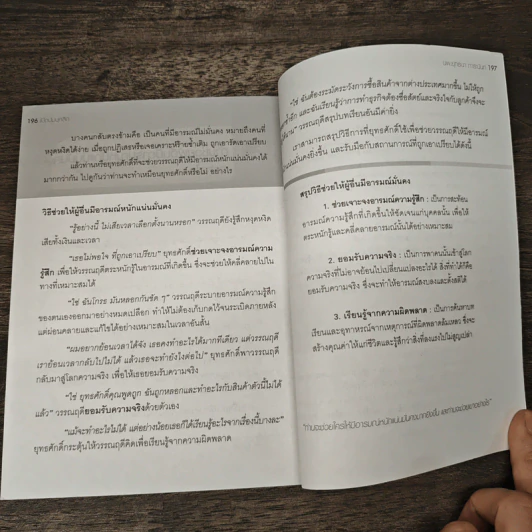 196
บางคนกลับตรงข้ามคือ เป็นคนที่มีอารมณ์ไม่มั่นคง หมายถึงคนที่
หงุดหงิดได้ง่าย เมื่อถูกปฏิเสธหรือเจอคราวที่ร้ายซ้ำเติม ถูกเอารัดเอาเปรียบ
แล้วท่านหรือยุทธศักดิ์ที่จะช่วยวรรณฤดีให้มีอารมณ์หนักแน่นมั่นคงได้
มากกว่ากัน ไปดูกันว่าท่านจะทำเหมือนยุทธศักดิ์หรือไม่ อย่างไร
วิธีช่วยให้ผู้อื่นมีอารมณ์หนักแน่นมั่นคง
"รู้อย่างนี้ ไม่เสียเวลาเลือกตั้งนานหรอก" วรรณฤดียังรู้สึกหงุดหงิด
เสียทั้งเงินและเวลา
"เธอไม่พอใจ ที่ถูกเอาเปรียบ" ยุทธศักดิ์ช่วยเจาะจงอารมณ์ความ
รู้สึก เพื่อให้วรรณฤดีตระหนักรู้ในอารมณ์ที่เกิดขึ้น ซึ่งจะช่วยให้คลี่คลายไปใน
ทางที่เหมาะสมได้
"ใช่ ฉันโกรธ มันหลอกกันชัด ๆ" วรรณฤดีระบายอารมณ์ความรู้สึก
ของตนเองออกมาอย่างหมดเปลือก ทำให้ไม่ต้องเก็บกดไว้จนระเบิดภายหลัง
แต่ผ่อนคลายและแก้ไขได้อย่างเหมาะสมในเวลาอันสั้น
"ผมอยากย้อนเวลาได้จัง เธอคงทำอะไรได้มากทีเดียว แต่วรรณฤดี
เราย้อนเวลากลับไปไม่ได้ แล้วเธอจะทำยังไงต่อไป" ยุทธศักดิ์พาวรรณฤดี
กลับมาสู่โลกความจริง เพื่อให้เธอยอมรับความจริง
"ใช่ ยุทธศักดิ์คุณพูดถูก ฉันถูกหลอกและทำอะไรกับสินค้าตัวนี้ไม่ได้
แล้ว" วรรณฤดียอมรับความจริงด้วยตัวเอง
"แม้จะทำอะไรไม่ได้ แต่อย่างน้อยเธอก็ได้เรียนรู้อะไรจากเรื่องนี้บางละ"
ยุทธศักดิ์กระตุ้นให้วรรณฤดีคิดเพื่อเรียนรู้จากความผิดพลาด
197
"ใช่ ฉันต้องระมัดระวังการซื้อสินค้าจากต่างประเทศมากขึ้น ไม่ให้ถูก
อีก และฉันเรียนรู้ว่าการทำธุรกิจต้องซื่อสัตย์และจริงใจกับลูกค้าจึงจะ
วรรณฤดีสรุปบทเรียนอันมีค่ายิ่ง
เราสามารถสรุปวิธีการที่ยุทธศักดิ์ใช้เพื่อช่วยวรรณฤดีให้มีอารมณ์
แน่นมั่นคงยิ่งขึ้น และรับมือกับสถานการณ์ที่ถูกเอาเปรียบได้ดังนี้
สรุปวิธีช่วยให้ผู้อื่นมีอารมณ์มั่นคง
1. ช่วยเจาะจงอารมณ์ความรู้สึก: เป็นการสะท้อน
อารมณ์ความรู้สึกที่เกิดขึ้นให้ชัดเจนแก่บุคคลนั้น เพื่อให้
ตระหนักรู้และคลี่คลายอารมณ์นั้นได้อย่างเหมาะสม
2. ยอมรับความจริง: เป็นการพาคนนั้นเข้าสู่โลก
ความจริงที่ไม่อาจย้อนไปเปลี่ยนแปลงอะไรได้ สิ่งที่ทำได้ก็คือ
ยอมรับความจริง ซึ่งจะทำให้อารมณ์สงบลงและตั้งสติได้
3. เรียนรู้จากความผิดพลาด: เป็นการค้นหาบท
เรียนและอุทาหรณ์จากเหตุการณ์ที่ผิดพลาดล้มเหลว ซึ่งจะ
สร้างคุณค่าให้แก่ชีวิตและรู้สึกว่าสิ่งที่ลงแรงไปไม่สูญเปล่า